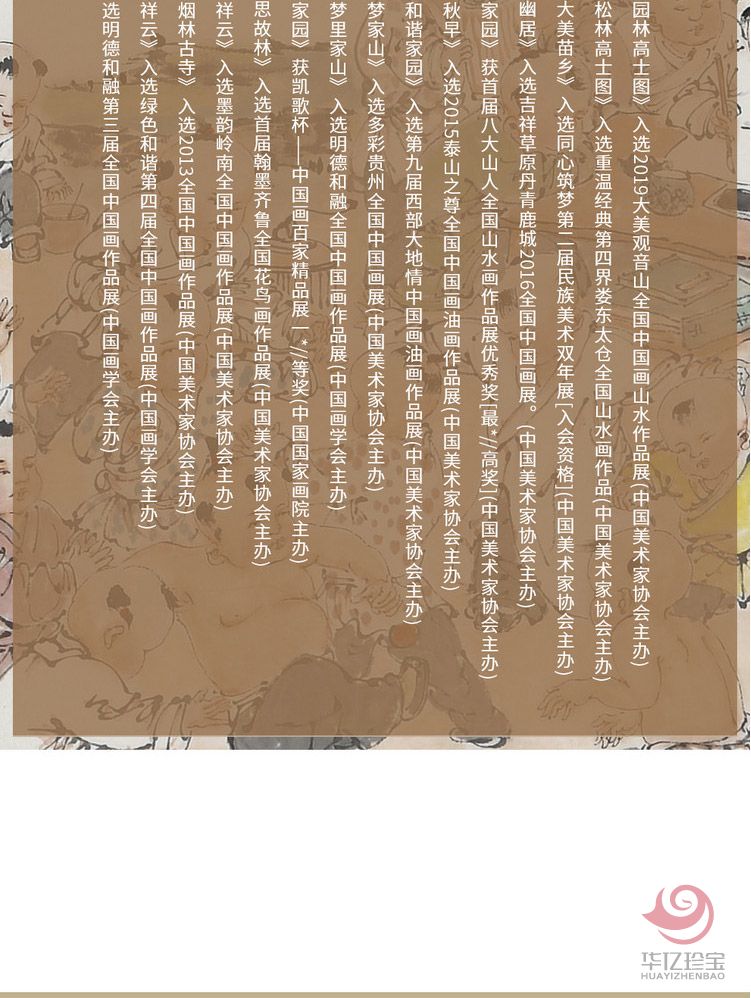 园林高士图》入选2019大美观音山全国中国画山水作品展(中国美术家协会主办)
松林高士图》入选重温经典第四界娄东太仓全国山水画作品(中国美术家协会主办)
大美苗乡》入选同心筑梦第二届民族美术双年展[入会资格](中国美术家协会主办)
幽居》入选吉祥草原丹青鹿城2016全国中国画展。(中国美术家协会主办)
家园》获首届八大山人全国山水画作品展优秀奖[最*//高奖](中国美术家协会主办)
秋早》入选2015泰山之尊全国中国画油画作品展(中国美术家协会主办)
和谐家园》入选第九届西部大地情中国画油画作品展(中国美术家协会主办)
梦家山》入选多彩贵州全国中国画展(中国美术家协会主办)
梦里家山》入选明德和融全国中国画作品展(中国画学会主办)
家园》获凯歌杯——中国画百家精品展一*//等奖(中国国家画院主办)
思故林》入选首届翰墨齐鲁全国花鸟画作品展(中国美术家协会主办)
祥云》入选墨韵岭南全国中国画作品展(中国美术家协会主办)
烟林古寺》入选2013全国中国画作品展(中国美术家协会主办)
祥云》入选绿色和谐第四届全国中国画作品展(中国画学会主办)
选明德和融第三届全国中国画作品展(中国画学会主办)
华亿珍宝
HUAYIZHENBAO